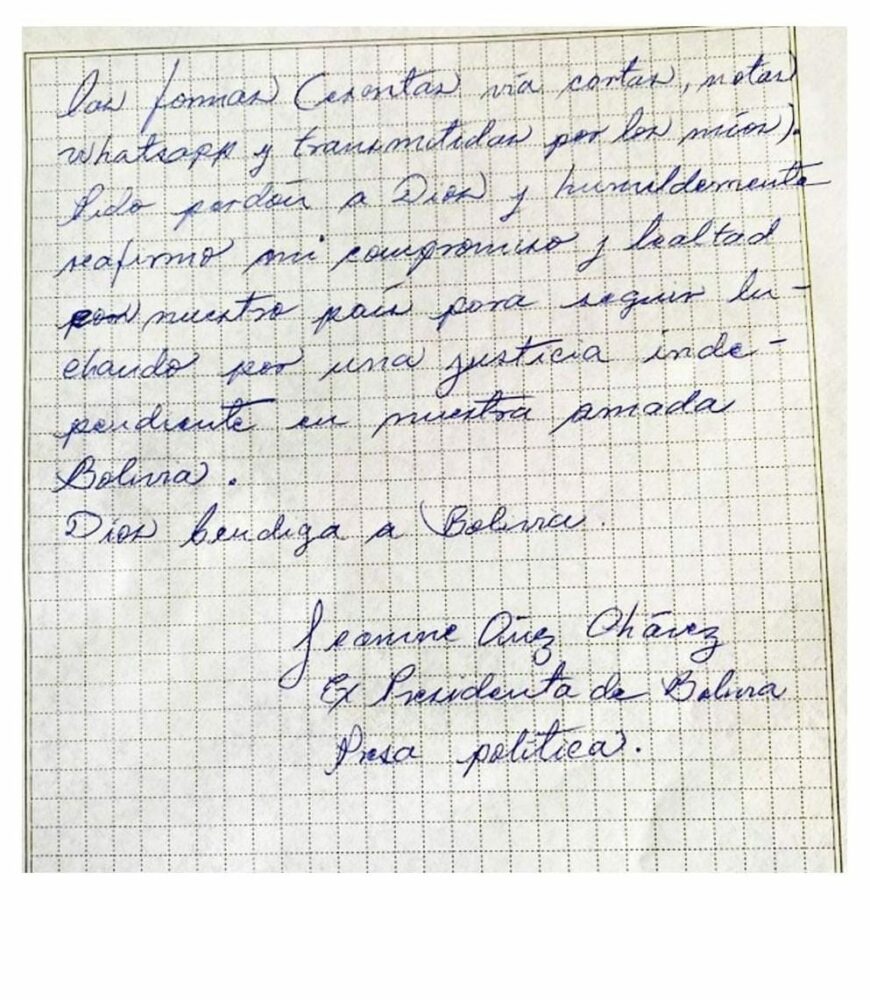 las formas (escritas vía cartas, notas
whatsapp y transmitidas por los míos).
Pido perdón a Dios y humildemente
reafirmo mi compromiso y lealtad
con nuestro país para seguir lu-
chando por una justicia inde-
pendiente en nuestra amada
Bolivia.
Dios bendiga a Bolivia.
Jeanine Áñez Chávez
Ex Presidenta de Bolivia
Presa política.